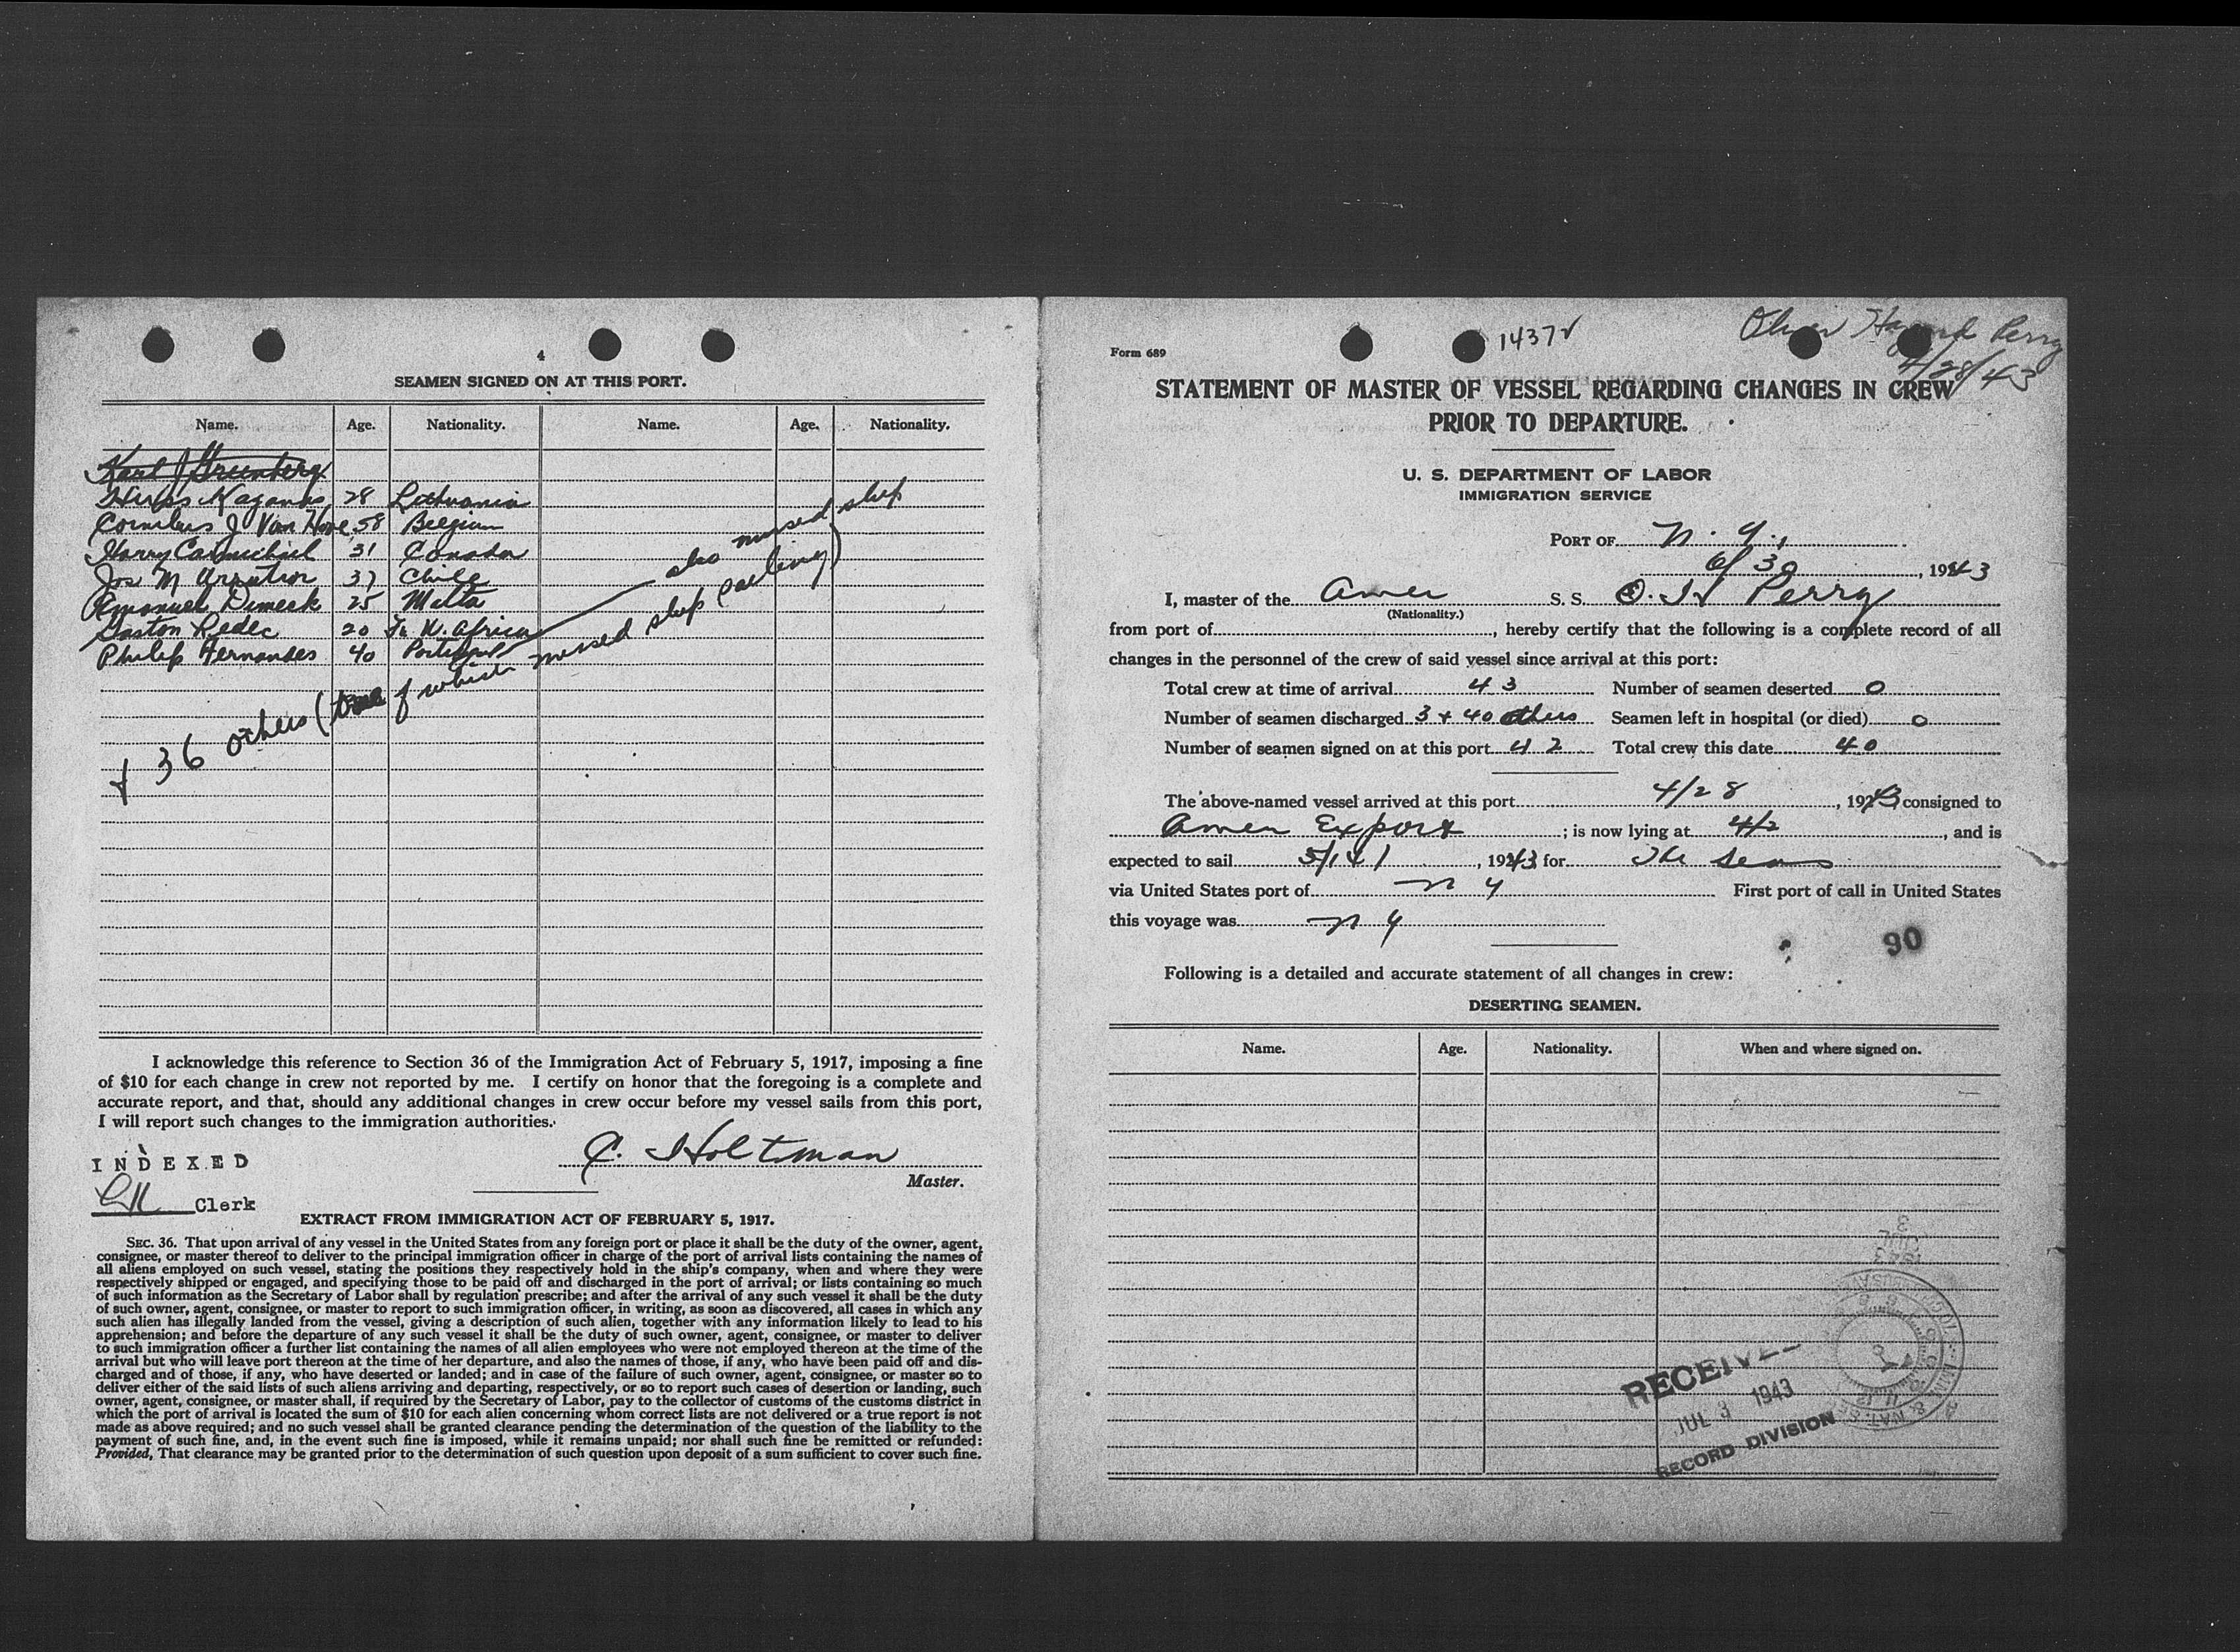 4
SEAMEN SIGNED ON AT THIS PORT.
Name. Age. Nationality. Name. Age. Nationality.
Karl J Greenberg
Kaganas 28 Lithuania
Cornelius J Van Hove 58 Belgium
Harry Carmichael 31 Canada
Jose M 37 Chile
Emanuel Dimech 25 Malta
Gaston Ledec 20 Fr. N. Africa
Philip Fernandes 40 Portugal
also missed ship
+ 36 others ( of which missed ship )
I acknowledge this reference to Section 36 of the Immigration Act of February 5, 1917, imposing a fine
of $10 for each change in crew not reported by me. I certify on honor that the foregoing is a complete and
accurate report, and that, should any additional changes in crew occur before my vessel sails from this port,
I will report such changes to the immigration authorities.
C. Holtman
Master.
INDEXED
Clerk
EXTRACT FROM IMMIGRATION ACT OF FEBRUARY 5, 1917.
SEC. 36. That upon arrival of any vessel in the United States from any foreign port or place it shall be the duty of the owner, agent,
consignee, or master thereof to deliver to the principal immigration officer in charge of the port of arrival lists containing the names of
all aliens employed on such vessel, stating the positions they respectively hold in the ship's company, when and where they were
respectively shipped or engaged, and specifying those to be paid off and discharged in the port of arrival; or lists containing so much
of such information as the Secretary of Labor shall by regulation prescribe; and after the arrival of any such vessel it shall be the duty
of such owner, agent, consignee, or master to report to such immigration officer, in writing, as soon as discovered, all cases in which any
such alien has illegally landed from the vessel, giving a description of such alien, together with any information likely to lead to his
apprehension; and before the departure of any such vessel it shall be the duty of such owner, agent, consignee, or master to deliver
to such immigration officer a further list containing the names of all alien employees who were not employed thereon at the time of the
arrival but who will leave port thereon at the time of her departure, and also the names of those, if any, who have been paid off and dis-
charged and of those, if any, who have deserted or landed; and in case of the failure of such owner, agent, consignee, or master so to
deliver either of the said lists of such aliens arriving and departing, respectively, or so to report such cases of desertion or landing, such
owner, agent, consignee, or master shall, if required by the Secretary of Labor, pay to the collector of customs of the customs district in
which the port of arrival is located the sum of $10 for each alien concerning whom correct lists are not delivered or a true report is not
made as above required; and no such vessel shall be granted clearance pending the determination of the question of the liability to the
payment of such fine, and, in the event such fine is imposed, while it remains unpaid; nor shall such fine be remitted or refunded:
Provided, That clearance may be granted prior to the determination of such question upon deposit of a sum sufficient to cover such fine.
Form 689
1437
Oliver Hazard Perry
4/28/43
STATEMENT OF MASTER OF VESSEL REGARDING CHANGES IN CREW
PRIOR TO DEPARTURE.
U. S. DEPARTMENT OF LABOR
IMMIGRATION SERVICE
PORT OF N. Y.,
6/30, 1943
I, master of the Amer S. S. O. H Perry
(Nationality.)
from port of , hereby certify that the following is a complete record of all
changes in the personnel of the crew of said vessel since arrival at this port:
Total crew at time of arrival 43 Number of seamen deserted 0
Number of seamen discharged 3 + 40 others Seamen left in hospital (or died) 0
Number of seamen signed on at this port 42 Total crew this date 40
The above-named vessel arrived at this port 4/28, 1943 consigned to
Amer Export ; is now lying at 4/2 , and is
expected to sail , 1943, for The Seas
via United States port of N Y First port of call in United States
this voyage was N Y
90
Following is a detailed and accurate statement of all changes in crew:
DESERTING SEAMEN.
Name. Age. Nationality. When and where signed on.
1943
JUL
3
RECEIVED
JUL 3 1943
RECORD DIVISION